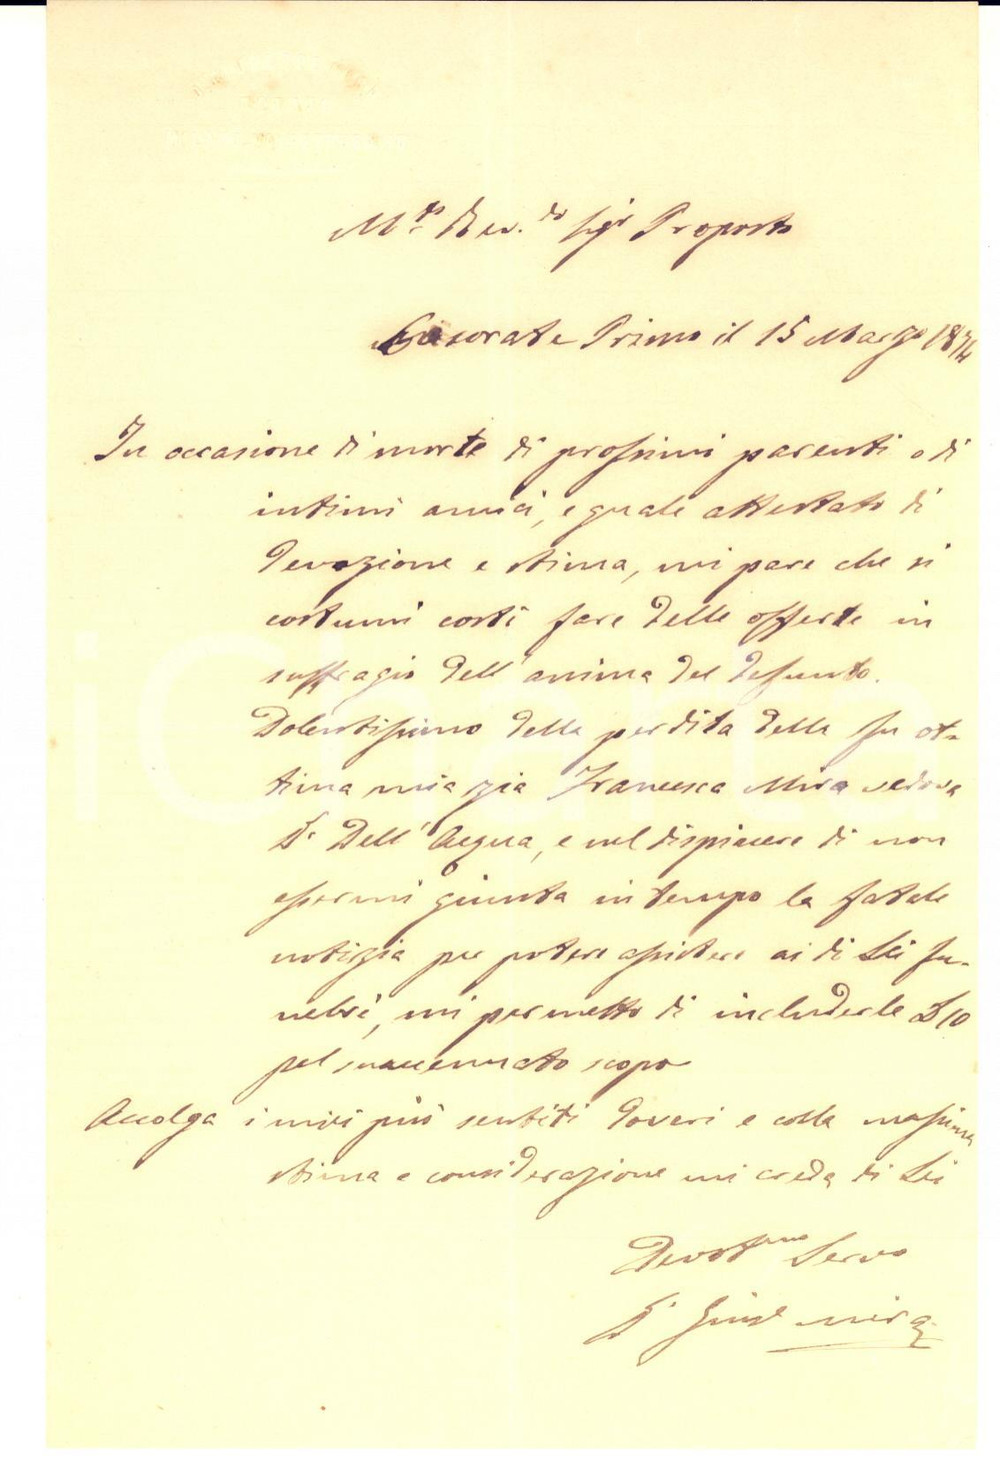 M.to Rev.do Sigr Proposto
Casorate Primo il 15 Marzo 1874
In occasione di morte di prossimi parenti o di
intimi amici, e quale attestato di
devozione e stima, mi pare che si
costumi costì fare delle offerte in
suffragio dell'anima del defunto.
Dolentissimo della perdita della fu ot-
tima mia zia Francesca Mira vedova
Dr Dell'Acqua, e nel dispiacere di non
essermi giunta in tempo la fatale
notizia per potere assistere ai di Lei fu-
nebri, mi permetto di includerle L 10
pel suaccennato scopo
Accolga i miei più sentiti doveri e colla massima
stima e considerazione mi creda di Lei
Devotssmo Servo
Dr Giuse Mira